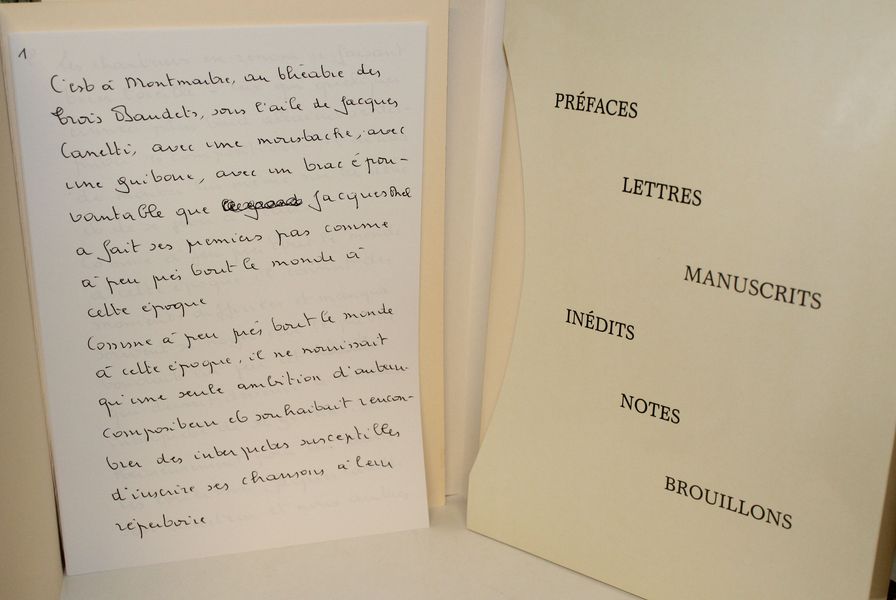 1
C'est à Montmartre, au théâtre des
trois Baudets, sous l'aile de Jacques
Canetti, avec une moustache, avec
une guibole, avec un trac épou-
vantable que Jacques Brel
a fait ses premiers pas comme
à peu près tout le monde à
cette époque
Comme à peu près tout le monde
à cette époque, il ne nourissait
qu'une seule ambition d'auteur-
compositeur et souhaitait rencon-
trer des interprètes susceptibles
d'inscrire ses chansons à leur
répertoire
PRÉFACES
LETTRES
MANUSCRITS
INÉDITS
NOTES
BROUILLONS